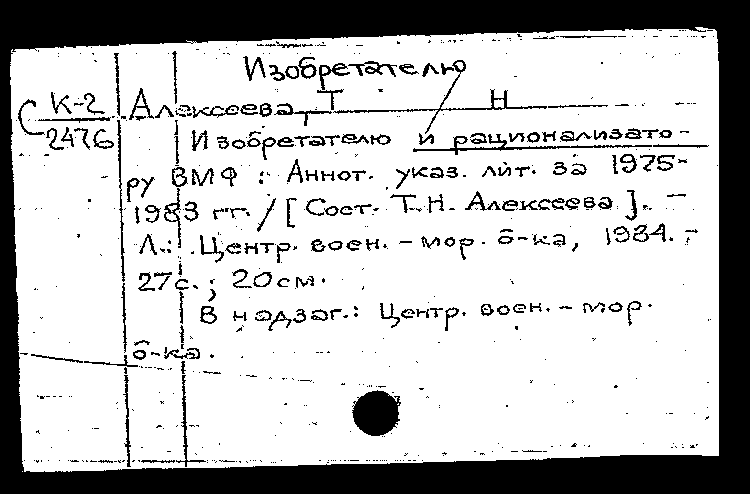 Изобретателю
С К-2 Алексеева, Т Н
2476 Изобретателю и рационализато-
ру ВМФ : Аннот. указ. лит. за 1975-
1983 гг. / [ Сост. Т.Н. Алексеева ]. -
Л.: Центр. воен. - мор. б-ка, 1984. -
27с. ; 20см.
В надзаг.: Центр. воен. - мор.
б-ка.